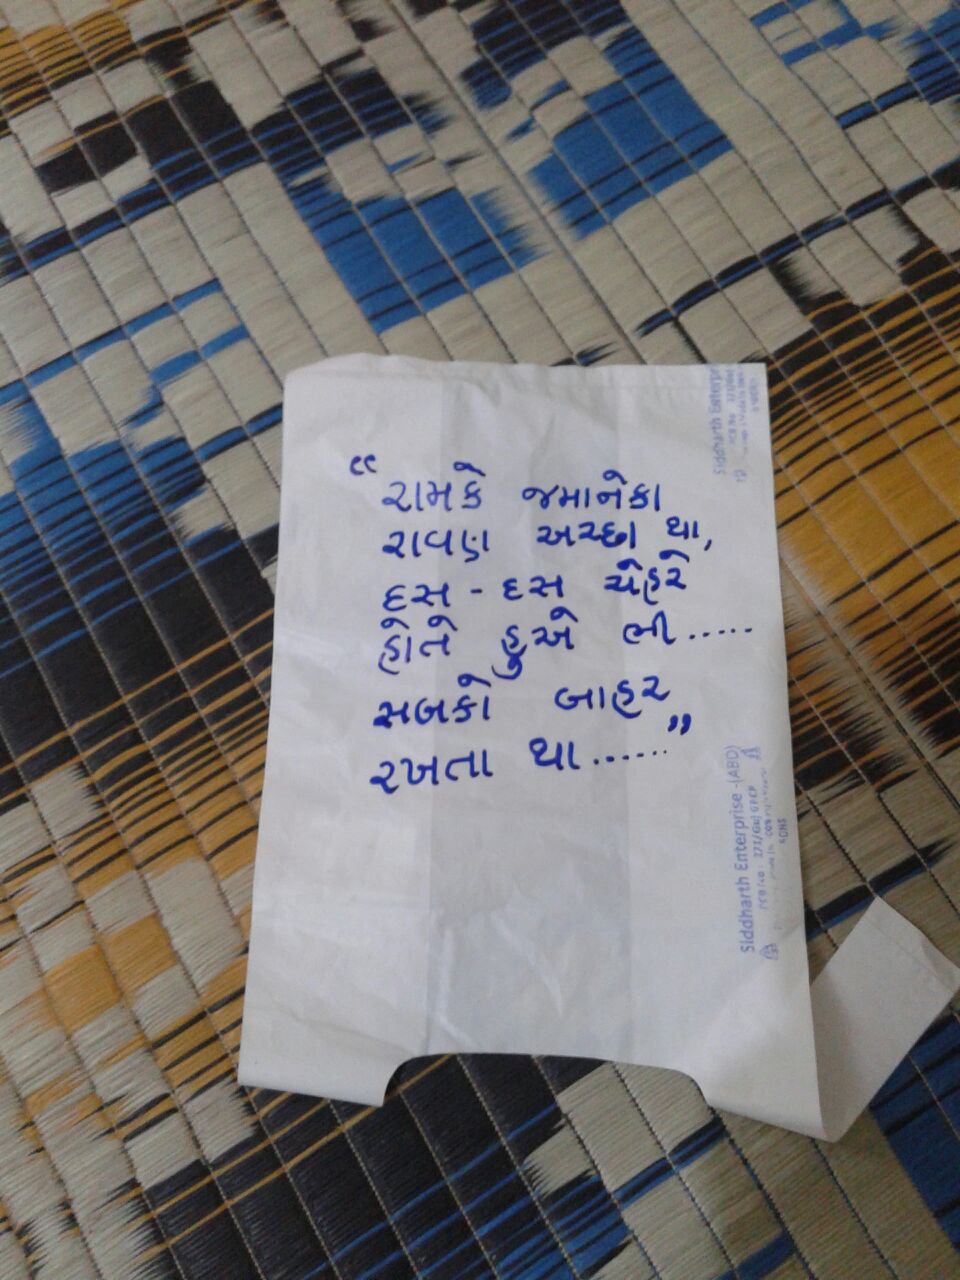 “ રામકે જમાનેકા
રાવણ અચ્છા થા,
દસ - દસ ચેહરે
હોતે હુએ ભી.....
સબકો બાહર
રખતા થા...... ”
Siddharth Enterpr
Siddharth Enterprise -(ABD)